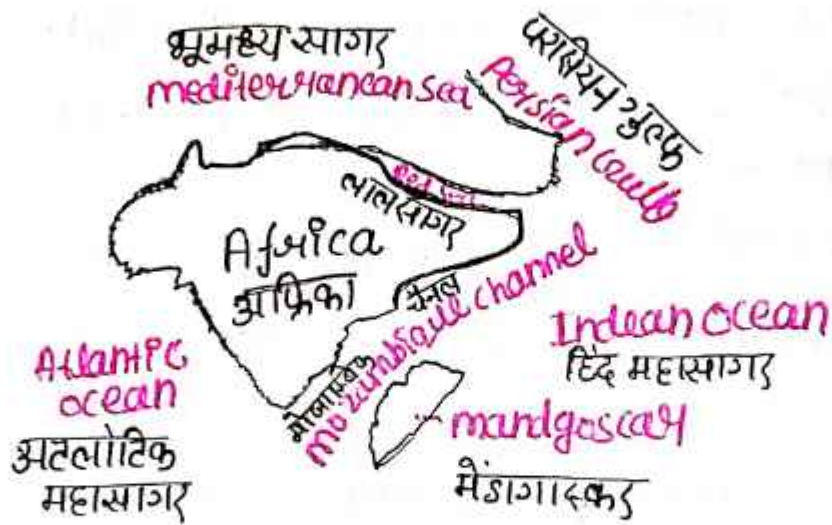 भूमध्य सागर
mediterranean sea
परसियन गुल्फ
Persian Gulf
Red Sea
लाल सागर
Africa
अफ्रिका
चैनल
मोजाम्बिक
mozambique channel
Indean ocean
हिंद महासागर
Atlantic
ocean
अटलांटिक
महासागर
mandgascar
मेंडागास्कर